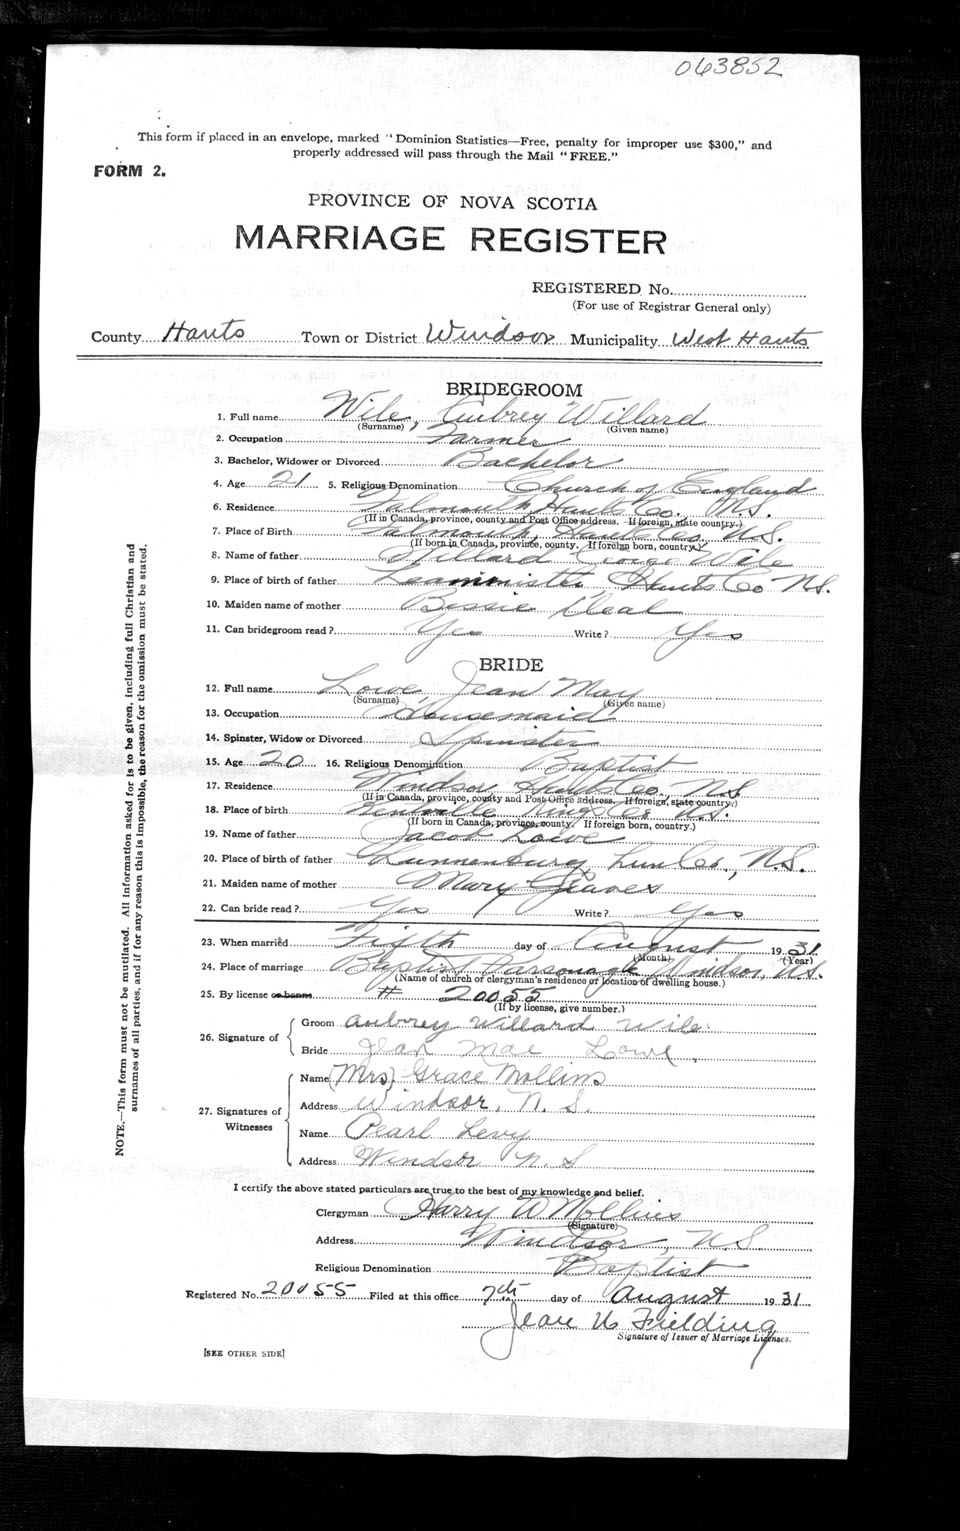 063852
This form if placed in an envelope, marked "Dominion Statistics—Free, penalty for improper use $300," and
properly addressed will pass through the Mail "FREE."
FORM 2.
PROVINCE OF NOVA SCOTIA
MARRIAGE REGISTER
REGISTERED No.
(For use of Registrar General only)
County Hants Town or District Windsor Municipality West Hants
BRIDEGROOM
1. Full name Wile, Aubrey Willard
(Surname) (Given name)
2. Occupation Farmer
3. Bachelor, Widower or Divorced Bachelor
4. Age 21 5. Religious Denomination Church of England
6. Residence Falmouth, Hants Co., N.S.
(If in Canada, province, county and Post Office address. If foreign, state country.)
7. Place of Birth Falmouth, Hants Co, N.S.
(If born in Canada, province, county. If foreign born, country.)
8. Name of father Willard George Wile
9. Place of birth of father Hants Co N.S.
10. Maiden name of mother Bessie Deal
11. Can bridegroom read? Yes Write? Yes
BRIDE
12. Full name Lowe, Jean May
(Surname) (Given name)
13. Occupation Housemaid
14. Spinster, Widow or Divorced Spinster
15. Age 20 16. Religious Denomination Baptist
17. Residence Windsor Hants Co., N.S.
(If in Canada, province, county and Post Office address. If foreign, state country.)
18. Place of birth Kentville, Kings Co. N.S.
(If born in Canada, province, county. If foreign born, country.)
19. Name of father Jacob Lowe
20. Place of birth of father Lunnenburg, Lun Co., N.S.
21. Maiden name of mother Mary
22. Can bride read? Yes Write? Yes
23. When married Fifth day of August 1931
(Month) (Year)
24. Place of marriage Baptist Parsonage Windsor, N.S.
(Name of church or clergyman's residence or location of dwelling house.)
25. By license or banns # 20055
(If by license, give number.)
26. Signature of
Groom Aubrey Willard Wile
Bride Jean Mae Lowe
27. Signatures of Witnesses
Name (Mrs) Grace Mollins
Address Windsor, N.S.
Name Pearl Levy
Address Windsor N.S
I certify the above stated particulars are true to the best of my knowledge and belief.
Clergyman Harry W Mollins
(Signature)
Address Windsor, N.S.
Religious Denomination Baptist
Registered No. 20055 Filed at this office 7th day of August 1931
Jean Fielding
Signature of Issuer of Marriage Licenses.
[SEE OTHER SIDE]
NOTE.—This form must not be mutilated. All information asked for is to be given, including full Christian and
surnames of all parties, and if for any reason this is impossible, the reason for the omission must be stated.